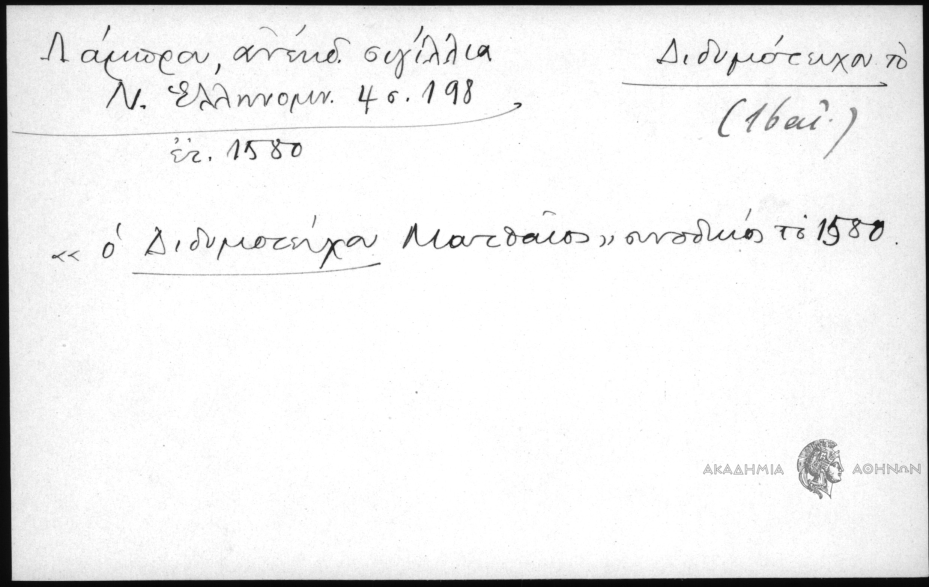 Λάμπρου, ἀνέκδ. σιγίλλια
Ν. Ἑλληνομν. 4 σ. 198
ἐτ. 1580
Διδυμότειχον τὸ
(16 αἰ.)
« ὁ Διδυμοτείχου Ματθαῖος » συνοδικός τὸ 1580.
ΑΚΑΔΗΜΙΑ ΑΘΗΝΩΝ